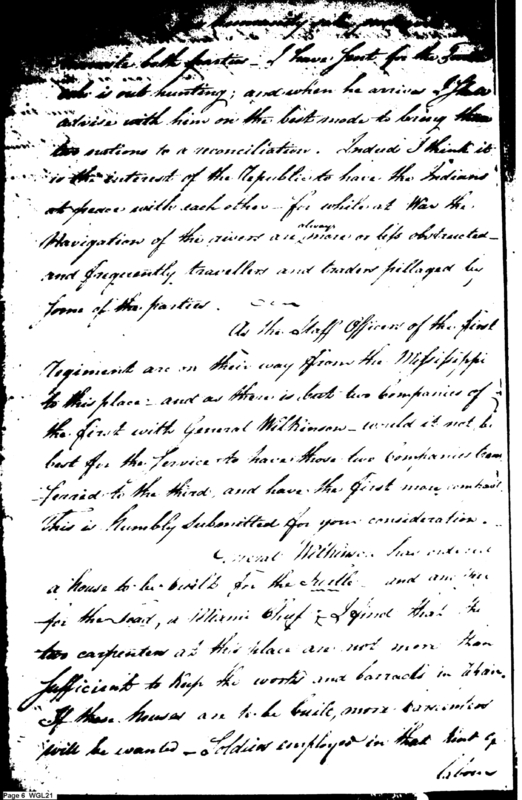 humanity
both parties – I have sent for the
who is out hunting; and when he arrives I shall
advise with him on the best mode to bring these
two nations to a reconciliation. Indeed I think it
is the interest of the Republic to have the Indians
at peace with each other – for while at War the
Navigation of the rivers are always more or less obstructed –
and frequently travellers and traders pillaged by
some of the parties.
As the Staff Officers of the first
Regiment are on their way from the Missisippi
to this place – and as there is but two Companies of
the first with General Wilkinson – would it not be
best for the Service to have those two Companies trans
-ferred to the third, and have the first more compact
This is humbly submitted for your consideration.
General Wilkinson has ordered
a house to be built for the Turtle and
for the Toad, a Miami Chief – I find that the
two carpenters at this place are not more than
sufficient to keep the works and barracks in
If these houses are to be built, more carpenters
will be wanted – Soldiers employed in that kind of
labour
Page 6 WGL21